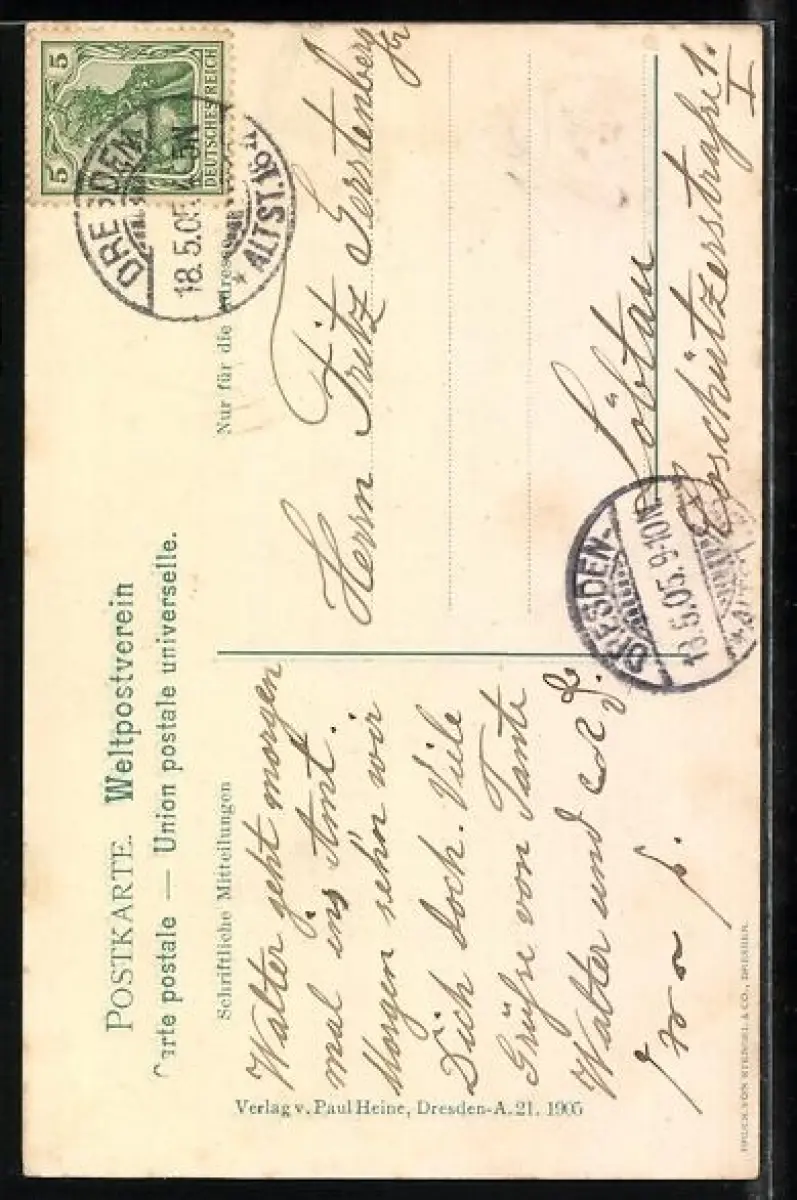 POSTKARTE. Weltpostverein
Carte postale — Union postale universelle.
Schriftliche Mitteilungen
Walter geht morgen
mal ins Amt.
Morgen sehn wir
Dich doch. Viele
Grüsse von Tante
Walter und
Nur für die Adresse
Herrn Fritz Gerstenberg
Löbtau
Coschützerstraße 1.
I
5
5
DEUTSCHES REICH
DRESDEN
18.5.05
5N
* ALTST. 16
DRESDEN-
18.5.05. 9-10N.
Verlag v. Paul Heine, Dresden-A. 21. 1905
DRUCK VON STENGEL & CO., DRESDEN.